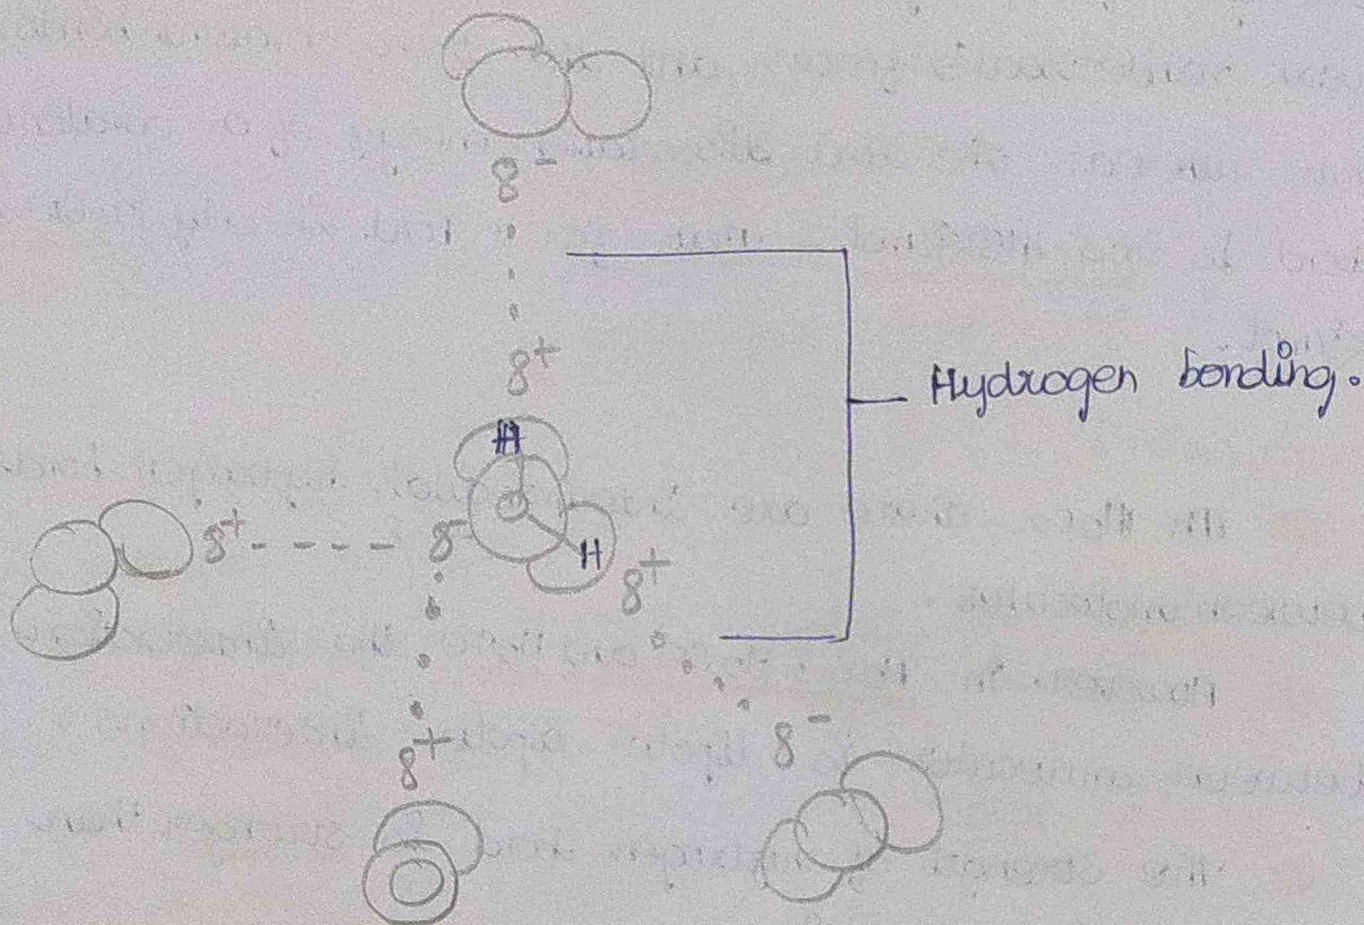 δ-
δ+
Hydrogen bonding.
H
δ+ δ- H
δ+
δ-
δ+